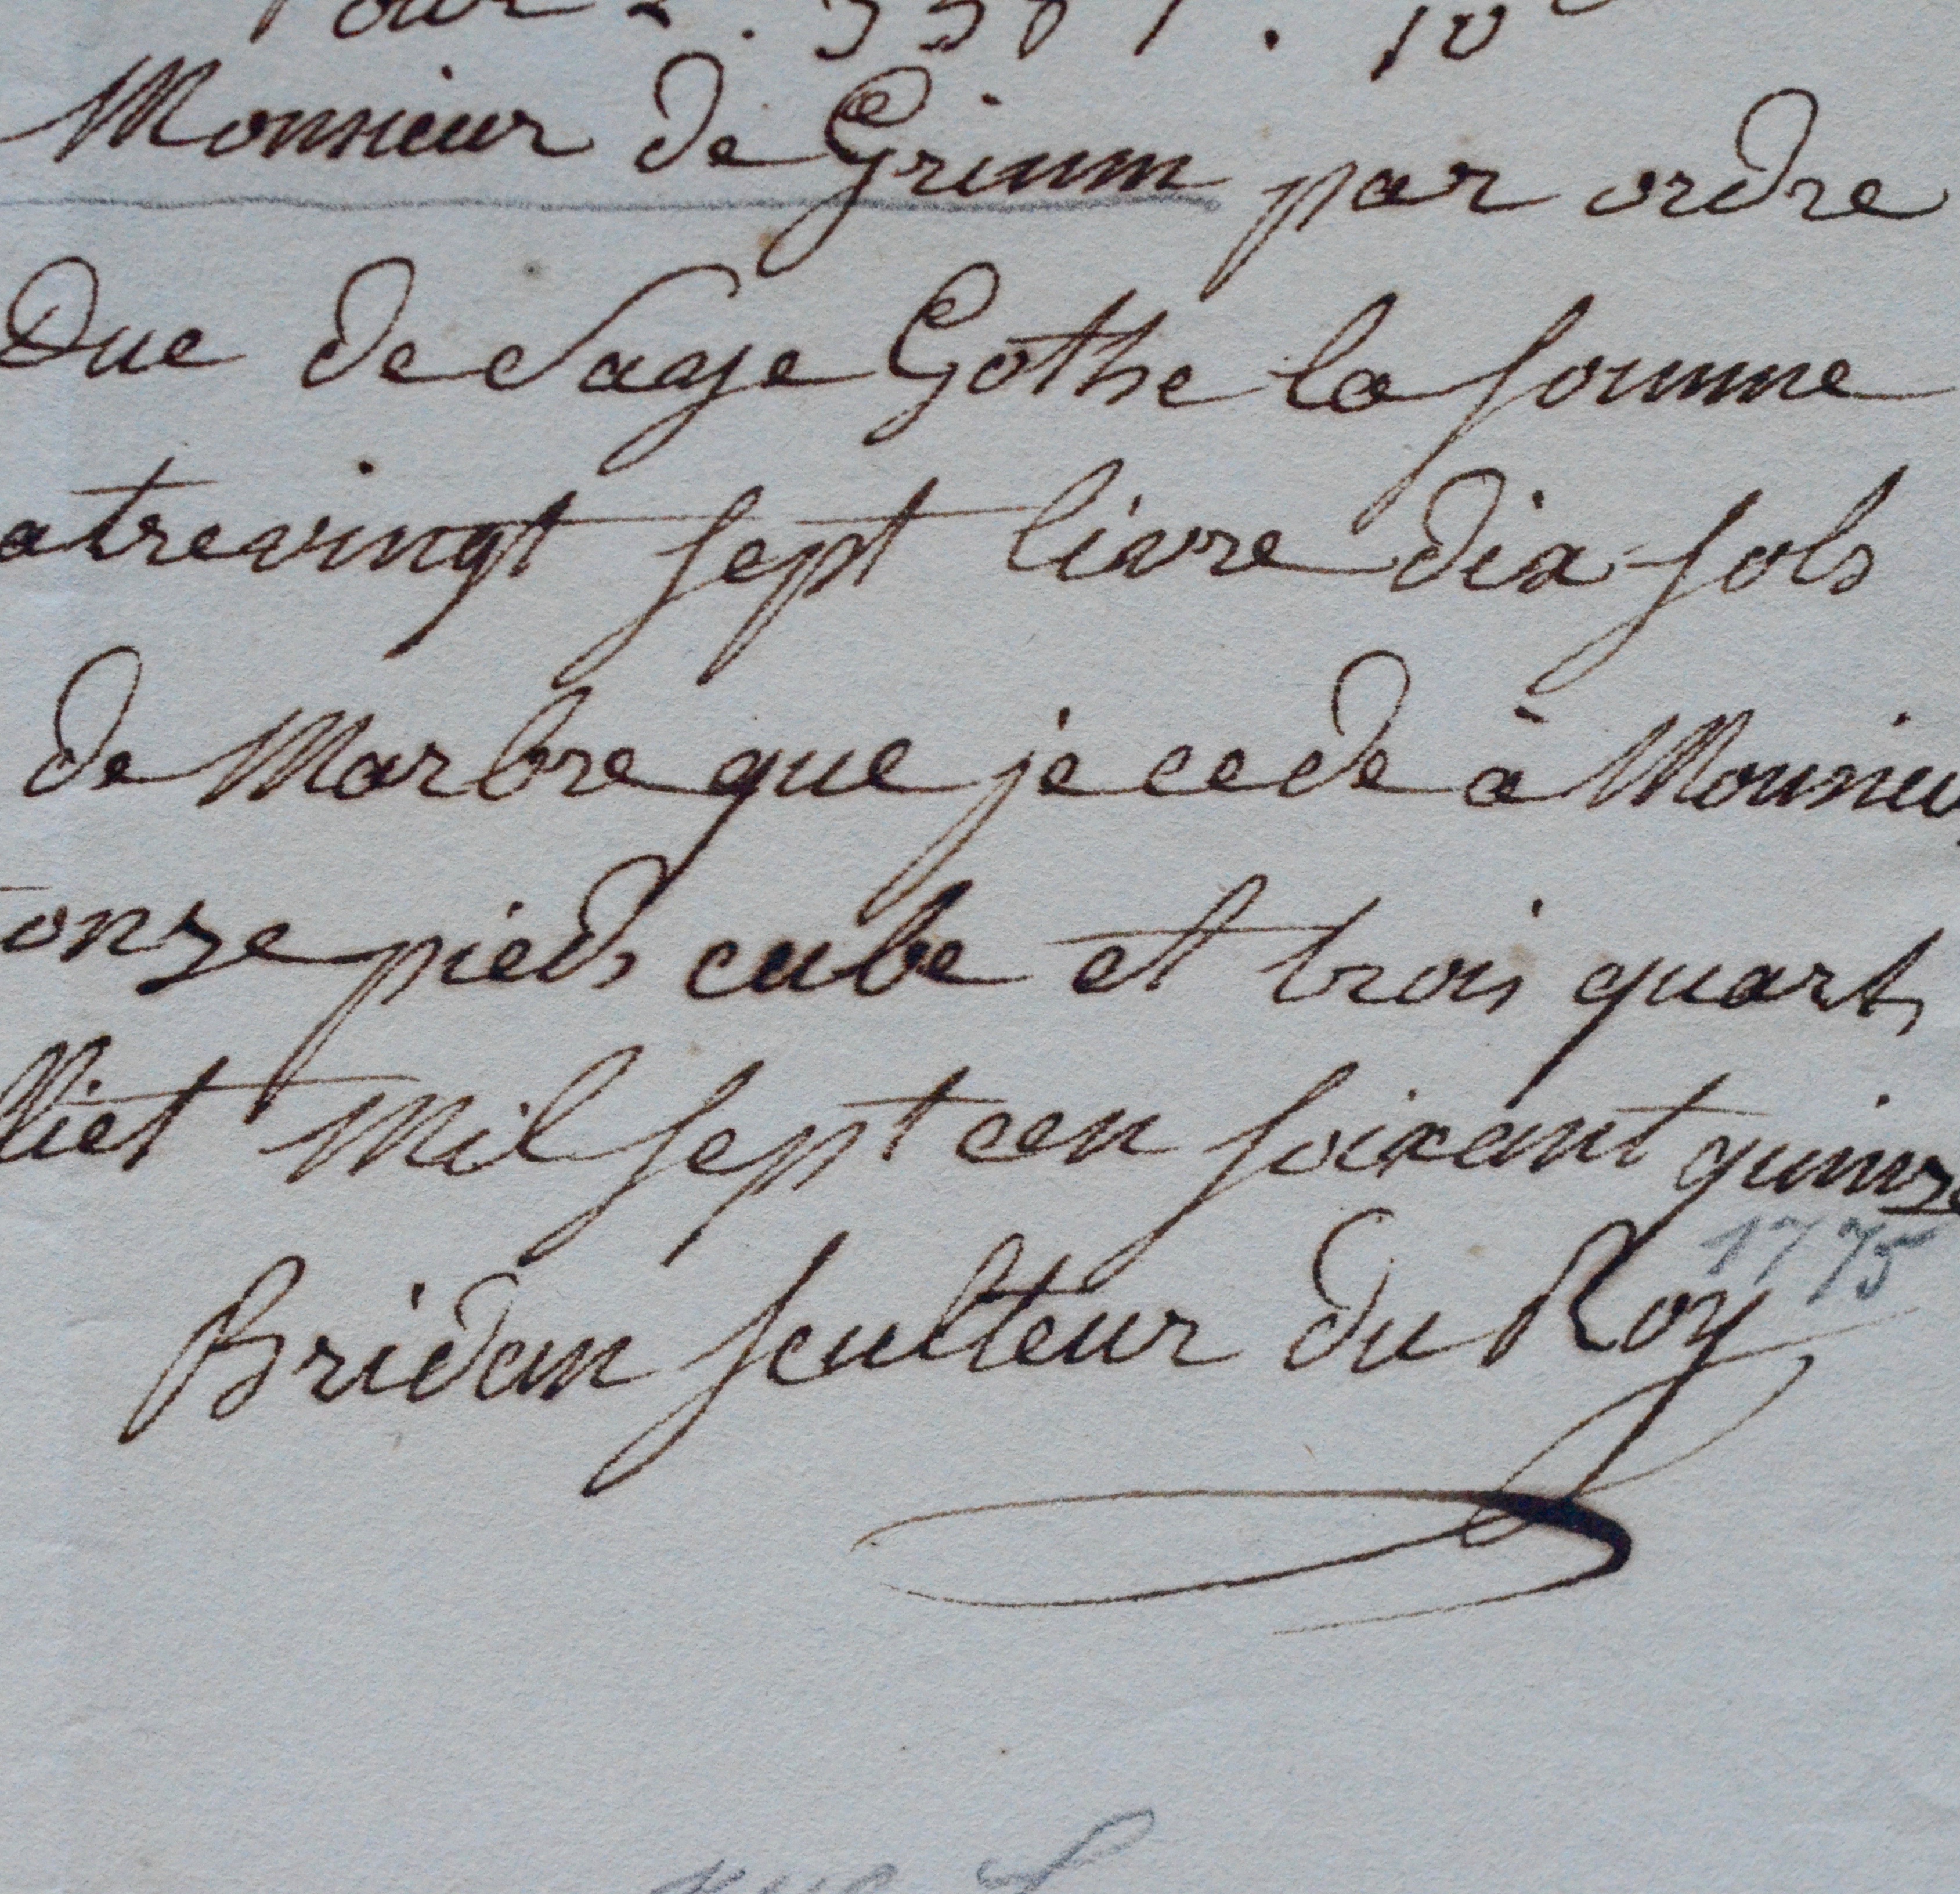 Monsieur de Grimm par ordre
Duc de Saxe Gothe la somme
atrevingt sept livre dix sols
de Marbre que je cede à Monsieu
onze pieds cube et trois quarts
lliet mil sept cen soixant quinze
1775
Bridan sculteur du Roy